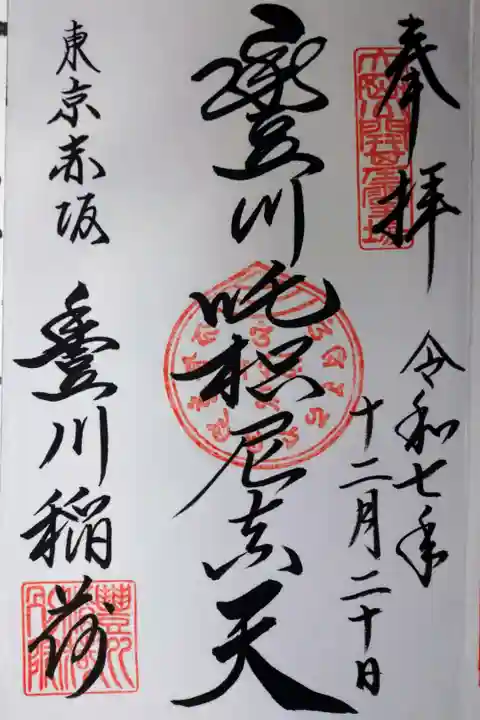 奉拝
令和七年
十二月二十日
豐川吒枳尼真天
東京赤坂
豊川稲荷